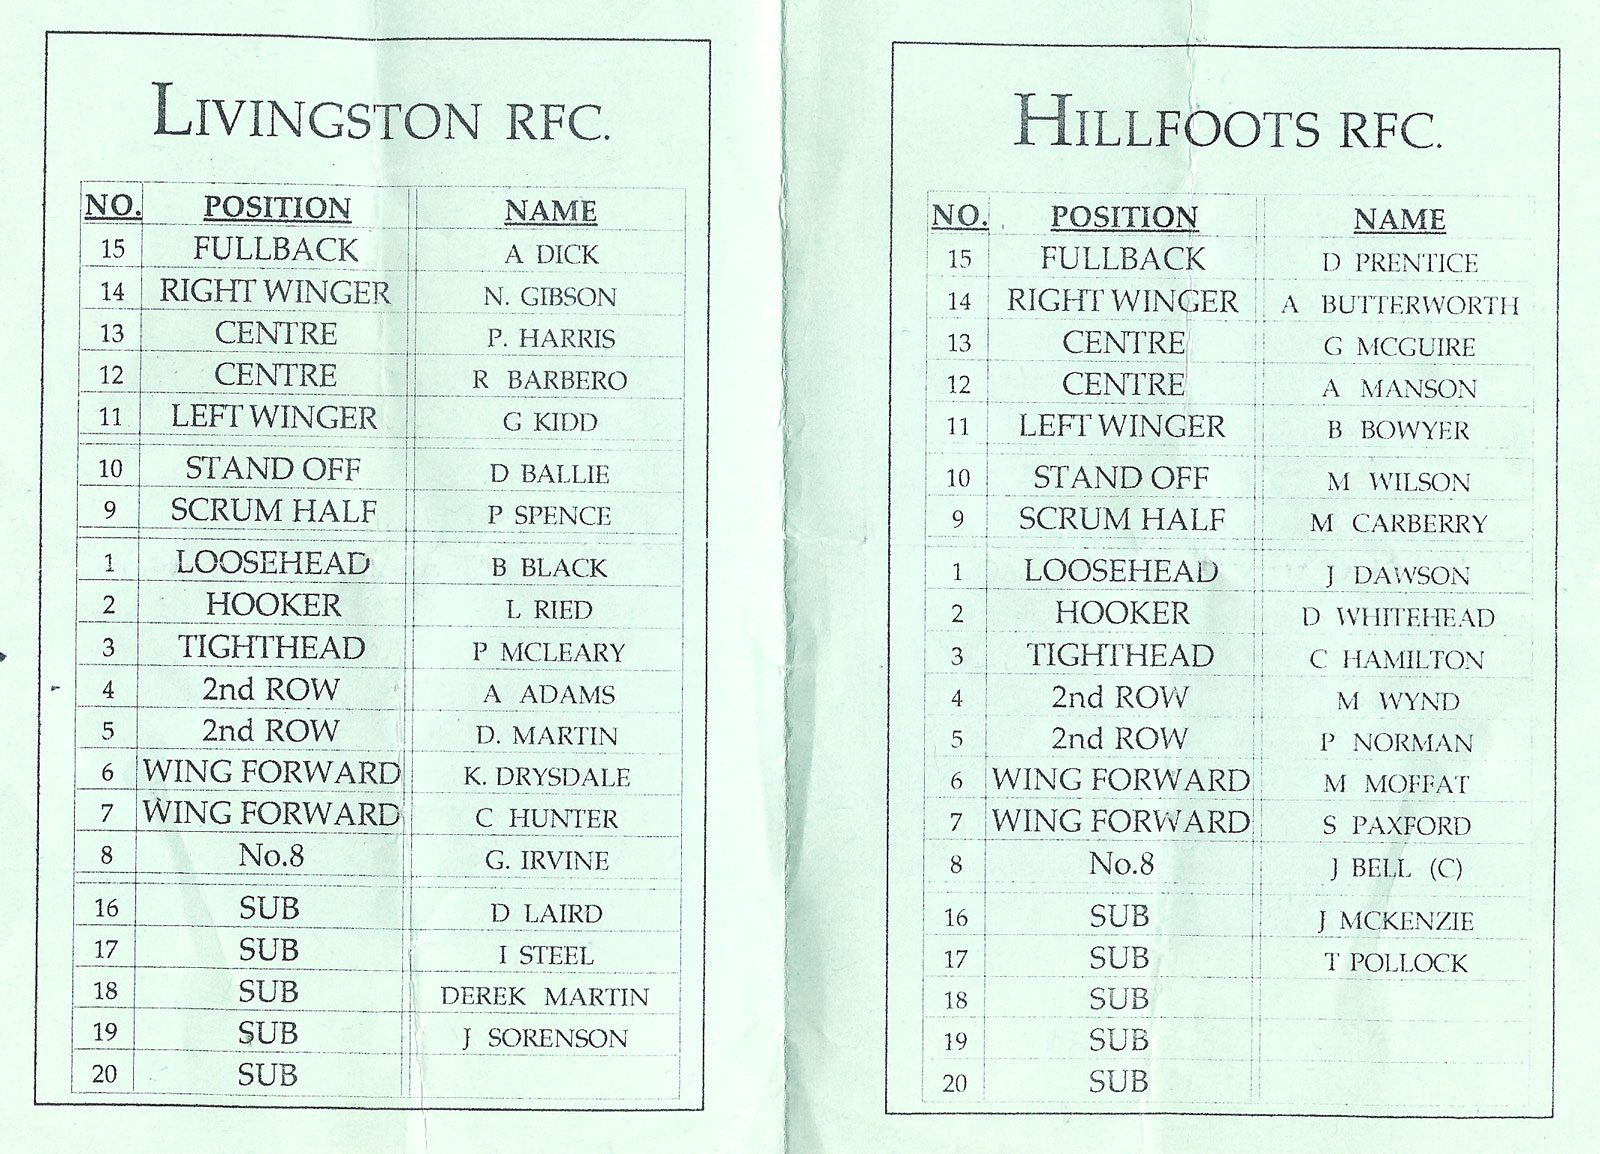 LIVINGSTON RFC.
NO. POSITION NAME
15 FULLBACK A DICK
14 RIGHT WINGER N. GIBSON
13 CENTRE P. HARRIS
12 CENTRE R BARBERO
11 LEFT WINGER G KIDD
10 STAND OFF D BALLIE
9 SCRUM HALF P SPENCE
1 LOOSEHEAD B BLACK
2 HOOKER L RIED
3 TIGHTHEAD P MCLEARY
4 2nd ROW A ADAMS
5 2nd ROW D. MARTIN
6 WING FORWARD K. DRYSDALE
7 WING FORWARD C HUNTER
8 No.8 G. IRVINE
16 SUB D LAIRD
17 SUB I STEEL
18 SUB DEREK MARTIN
19 SUB J SORENSON
20 SUB
HILLFOOTS RFC.
NO. POSITION NAME
15 FULLBACK D PRENTICE
14 RIGHT WINGER A BUTTERWORTH
13 CENTRE G MCGUIRE
12 CENTRE A MANSON
11 LEFT WINGER B BOWYER
10 STAND OFF M WILSON
9 SCRUM HALF M CARBERRY
1 LOOSEHEAD J DAWSON
2 HOOKER D WHITEHEAD
3 TIGHTHEAD C HAMILTON
4 2nd ROW M WYND
5 2nd ROW P NORMAN
6 WING FORWARD M MOFFAT
7 WING FORWARD S PAXFORD
8 No.8 J BELL (C)
16 SUB J MCKENZIE
17 SUB T POLLOCK
18 SUB
19 SUB
20 SUB